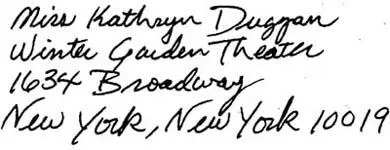 Miss Kathryn Duggan
Winter Garden Theater
1634 Broadway
New York, New York 10019